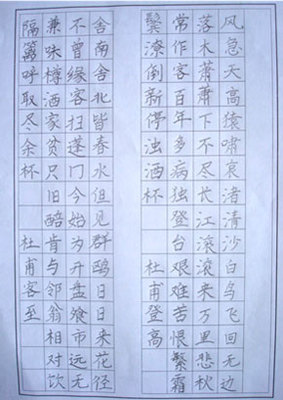 风急天高猿啸哀渚清沙白鸟飞回无边
落木萧萧下不尽长江滚滚来万里悲秋
常作客百年多病独登台艰难苦恨繁霜
鬓潦倒新停浊酒杯 杜甫登高
舍南舍北皆春水但见群鸥日日来花径
不曾缘客扫蓬门今始为开盘飧市远无
兼味樽酒家贫只旧醅肯与邻翁相对饮
隔篱呼取尽余杯 杜甫客至